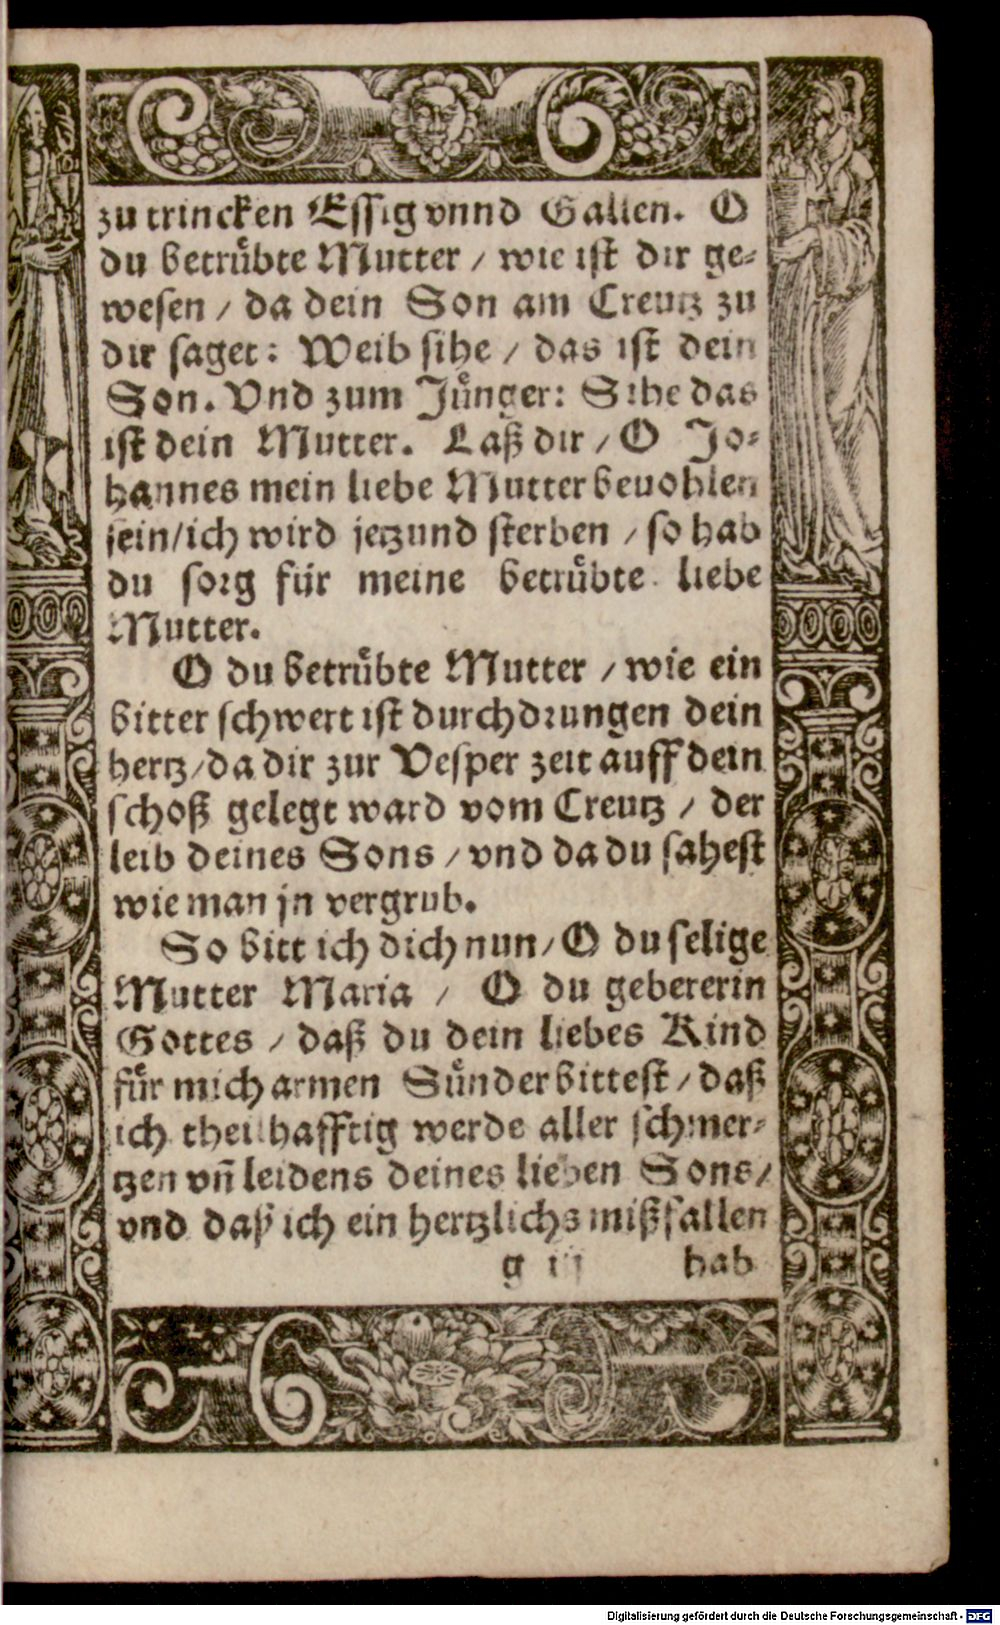 zu trincken Essig vnnd Gallen. O
du betrübte Mutter / wie ist dir ge-
wesen / da dein Son am Creutz zu
dir saget: Weib sihe / das ist dein
Son. Vnd zum Jünger: Sihe das
ist dein Mutter. Laß dir / O Jo-
hannes mein liebe Mutter beuohlen
sein / ich wird jetzund sterben / so hab
du sorg für meine betrübte liebe
Mutter.
O du betrübte Mutter / wie ein
bitter schwert ist durchdrungen dein
hertz / da dir zur Vesper zeit auff dein
schoß gelegt ward vom Creutz / der
leib deines Sons / vnd da du sahest
wie man jn vergrub.
So bitt ich dich nun / O du selige
Mutter Maria / O du gebererin
Gottes / daß du dein liebes Kind
für mich armen Sünder bittest / daß
ich theilhafftig werde aller schmer-
tzen vñ leidens deines lieben Sons /
vnd daß ich ein hertzlichs mißfallen
g iij hab
Digitalisierung gefördert durch die Deutsche Forschungsgemeinschaft - DFG